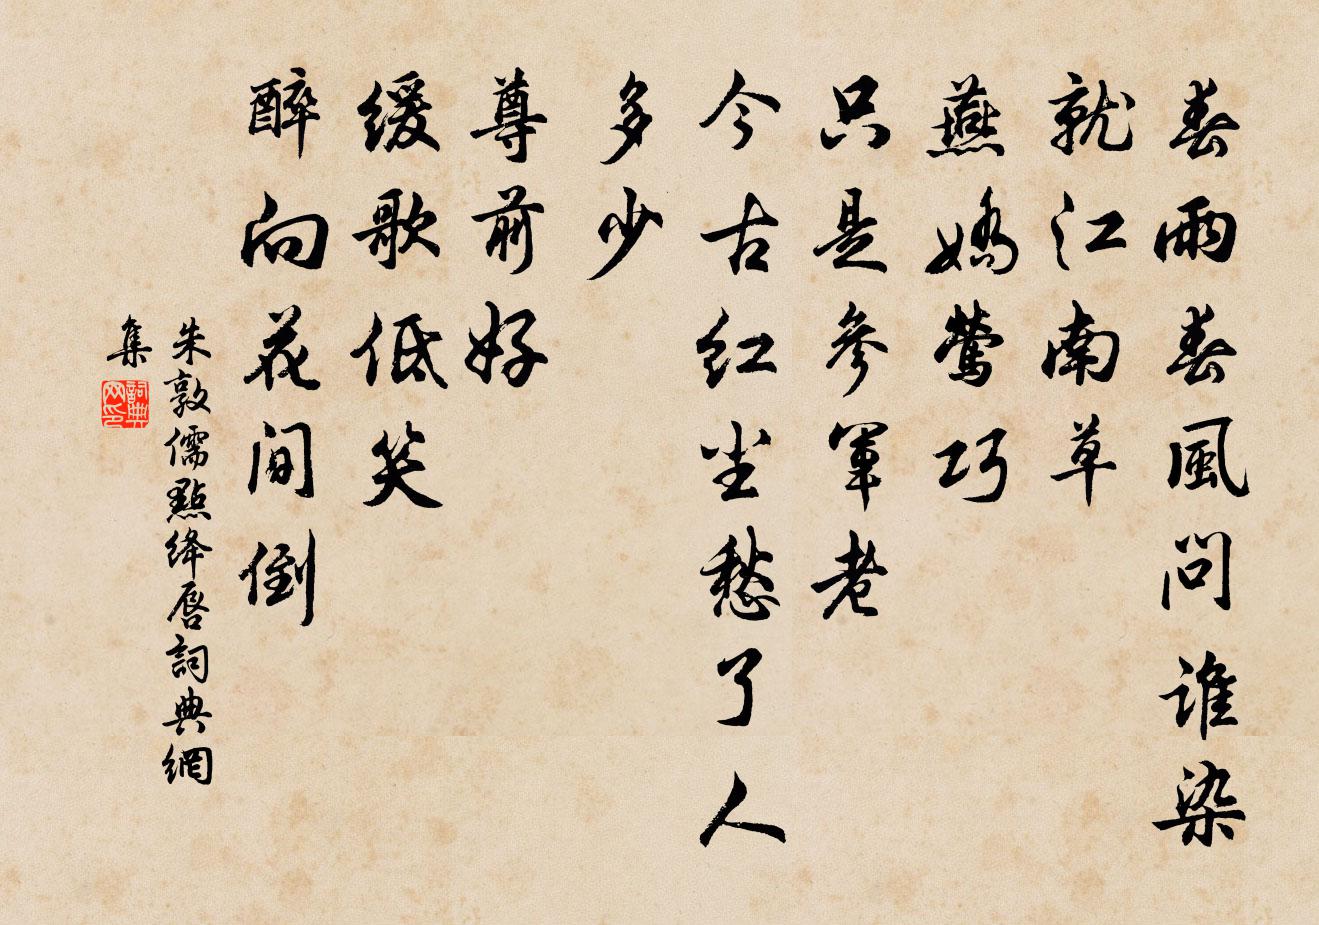 春雨春風問誰染
就江南草
燕嬌鶯巧
只是參軍老
今古紅尘愁了人
多少
尊前好
緩歌低笑
醉向花間倒
朱敦儒點絳唇詞典網
集
詞典
网印